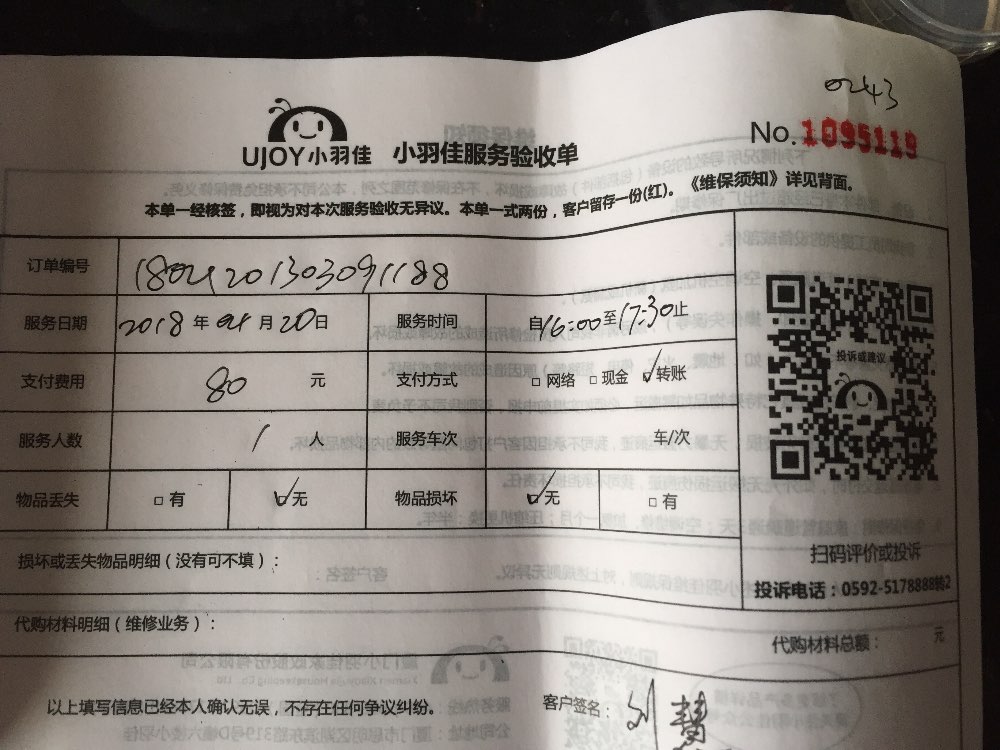 0243
UJOY小羽佳 小羽佳服务验收单
No.1095119
本单一经核签，即视为对本次服务验收无异议。本单一式两份，客户留存一份(红)。《维保须知》详见背面。
订单编号 180421201303091188
服务日期 2018年04月20日 服务时间 自16:00至17:30止
支付费用 80 元 支付方式 □网络 □现金 ☑转账
服务人数 1 人 服务车次 车/次
物品丢失 □有 ☑无 物品损坏 ☑无 □有
投诉或建议
扫码评价或投诉
投诉电话：0592-5178888转2
损坏或丢失物品明细（没有可不填）：
代购材料明细（维修业务）：
代购材料总额： 元
以上填写信息已经本人确认无误，不存在任何争议纠纷。
客户签名：刘